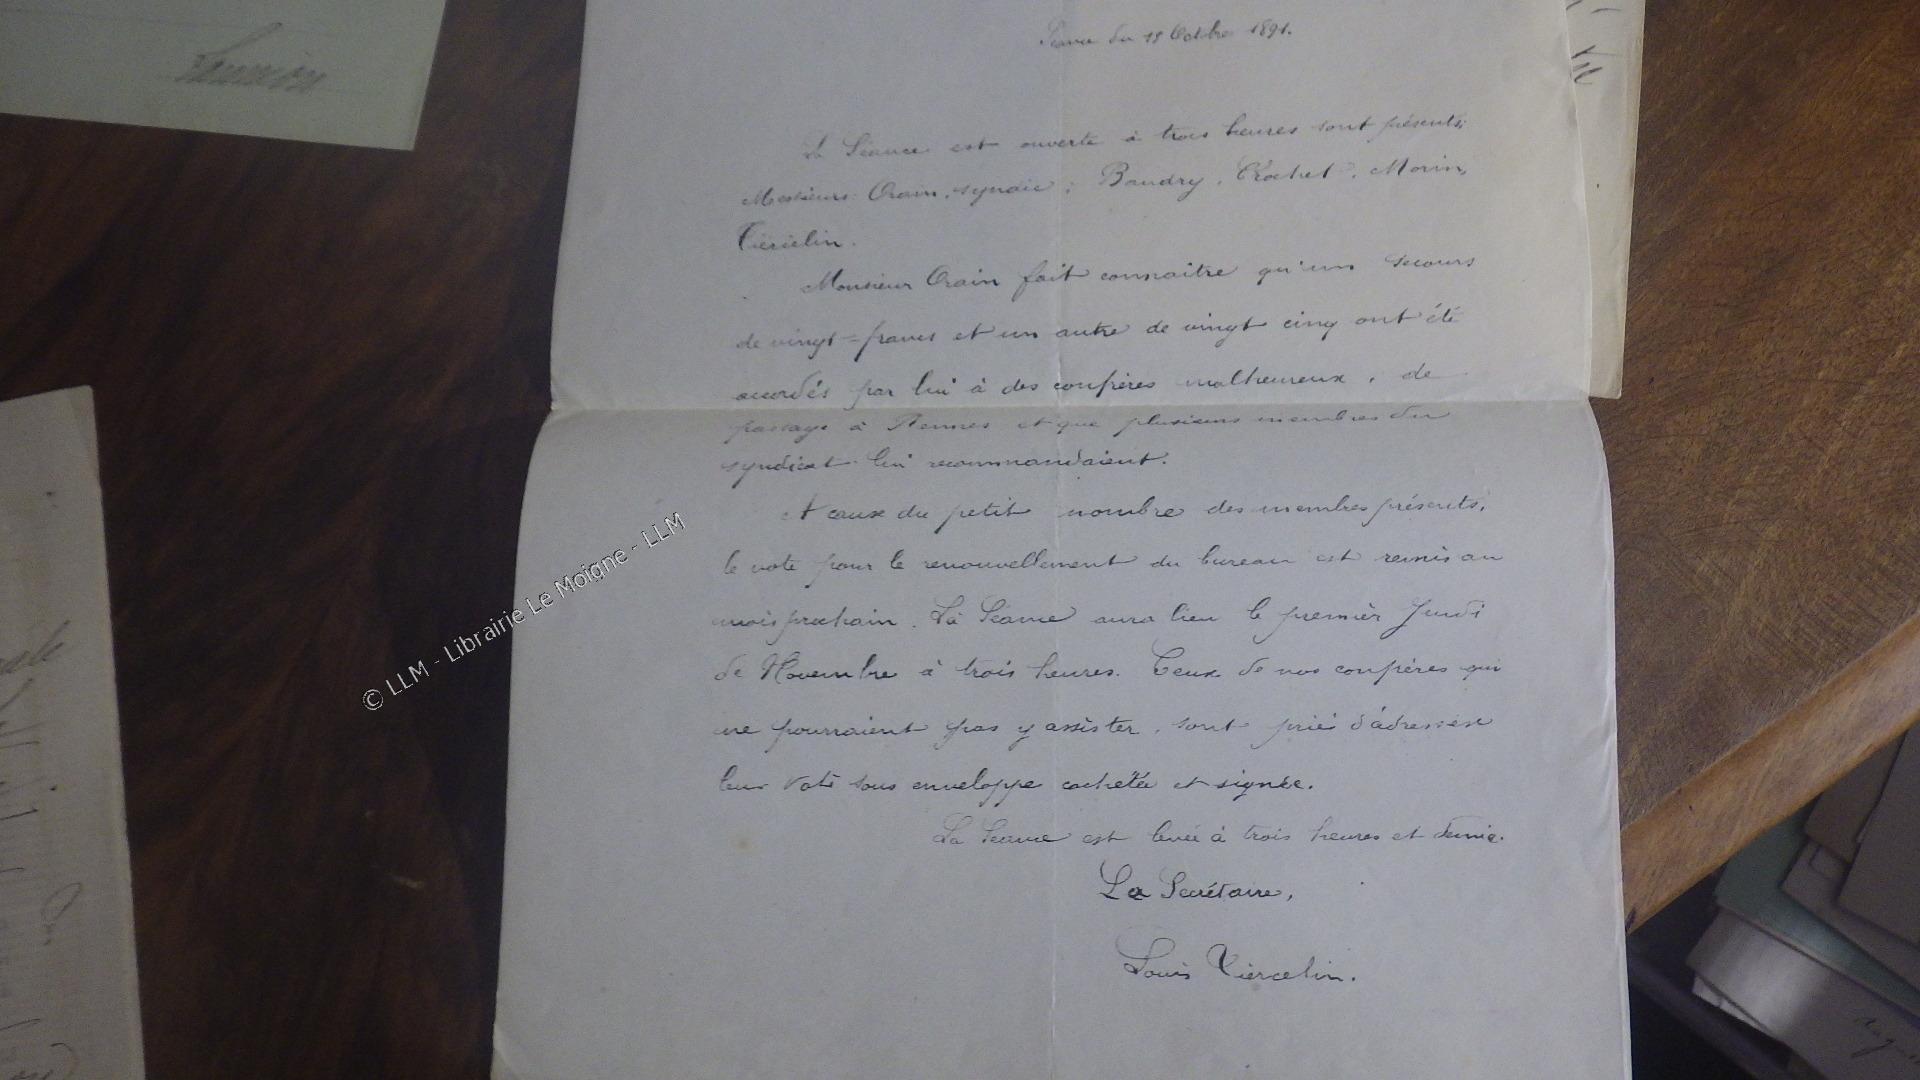 Séance du 15 Octobre 1891.
La Séance est ouverte à trois heures sont présents:
Messieurs Orain, syndic; Baudry, Crochet, Morin,
Tiercelin.
Monsieur Orain fait connaitre qu'un secours
de vingt-francs et un autre de vingt cinq ont été
accordés par lui à des confrères malheureux, de
passage à Rennes et que plusieurs membres du
syndicat lui recommandaient.
A cause du petit nombre des membres présents,
le vote pour le renouvellement du bureau est remis au
mois prochain. La Séance aura lieu le premier Jeudi
de Novembre à trois heures. Ceux de nos confrères qui
ne pourraient pas y assister, sont priés d'adresser
leur vote sous enveloppe cachetée et signée.
La Séance est levée à trois heures et demie.
Le Secrétaire,
Louis Tiercelin.
© LLM - Librairie Le Moigne - LLM